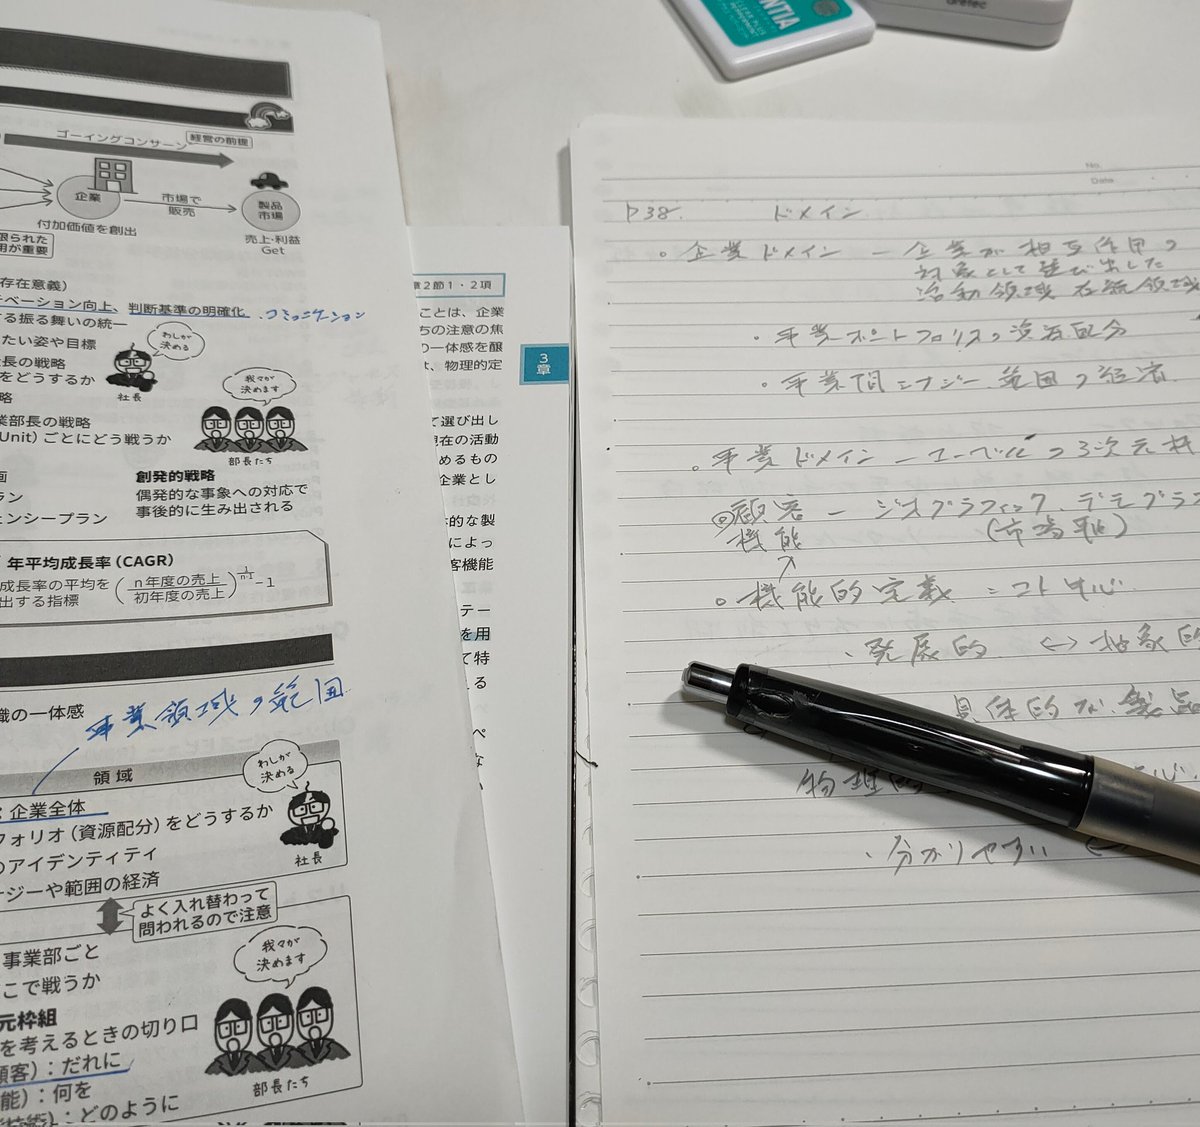 ENTIA
aretec
ゴーイングコンサーン
経営の前提
企業
市場で
販売
製品
市場
付加価値を創出
売上・利益
Get
限られた
用が重要
存在意義)
ベーション向上、判断基準の明確化、コミュニケーション
する振る舞いの統一
たい姿や目標
わしが
決める
社長の戦略
をどうするか
社長
我々が
決めます
業部長の戦略
Unit)ごとにどう戦うか
部長たち
創発的戦略
偶発的な事象への対応で
事後的に生み出される
ラン
ェンシープラン
年平均成長率(CAGR)
成長率の平均を
出する指標
n年度の売上
初年度の売上
-1
識の一体感
事業領域の範囲
領域
わしが
決める
:企業全体
フォリオ(資源配分)をどうするか
のアイデンティティ
社長
ナジーや範囲の経済
よく入れ替わって
問われるので注意
事業部ごと
こで戦うか
我々が
決めます
元枠組
を考えるときの切り口
顧客):だれに
部長たち
能):何を
技術):どのように
章2節1・2項
ことは、企業
ちの注意の焦
の一体感を醸
は、物理的定
3
章
て選び出し
現在の活動
めるもの
企業とし
的な製
によっ
客機能
テー
を用
て特
える
ペ
な
い
No.
Date
P38. ドメイン
・企業ドメイン ー 企業が相互作用の
対象として選び出した
活動領域 存続領域
・事業ポートフォリオの資源配分
・事業間シナジー、範囲の経済
・事業ドメイン ー エーベルの3次元枠
◎顧客 ー ジオグラフィック、デモグラフ
機能
(市場軸)
○機能的定義 = コト中心
・発展的 ↔ 抽象的
具体的な製品
物理的
心
・分かりやすい